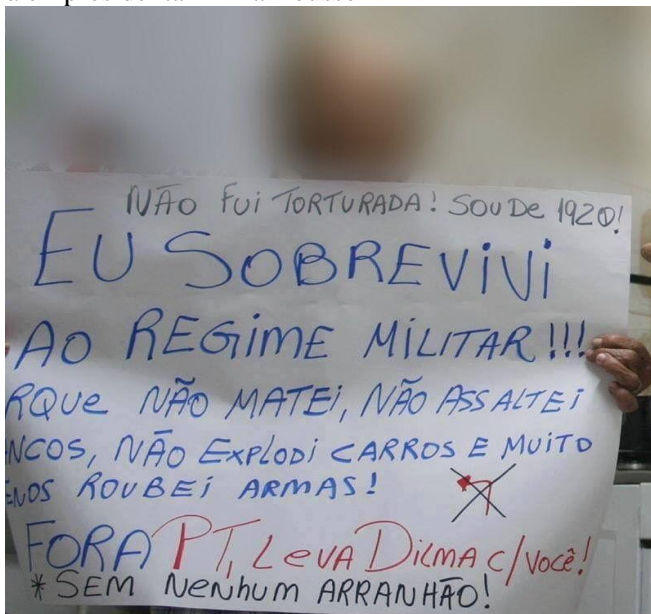 NÃO FUI TORTURADA! SOU DE 1920!
EU SOBREVIVI
AO REGIME MILITAR!!!
RQUE NÃO MATEI, NÃO ASSALTEI
NCOS, NÃO EXPLODI CARROS E MUITO
ENOS ROUBEI ARMAS!
FORA PT, LEVA DILMA C/ VOCÊ!
* SEM NENHUM ARRANHÃO!